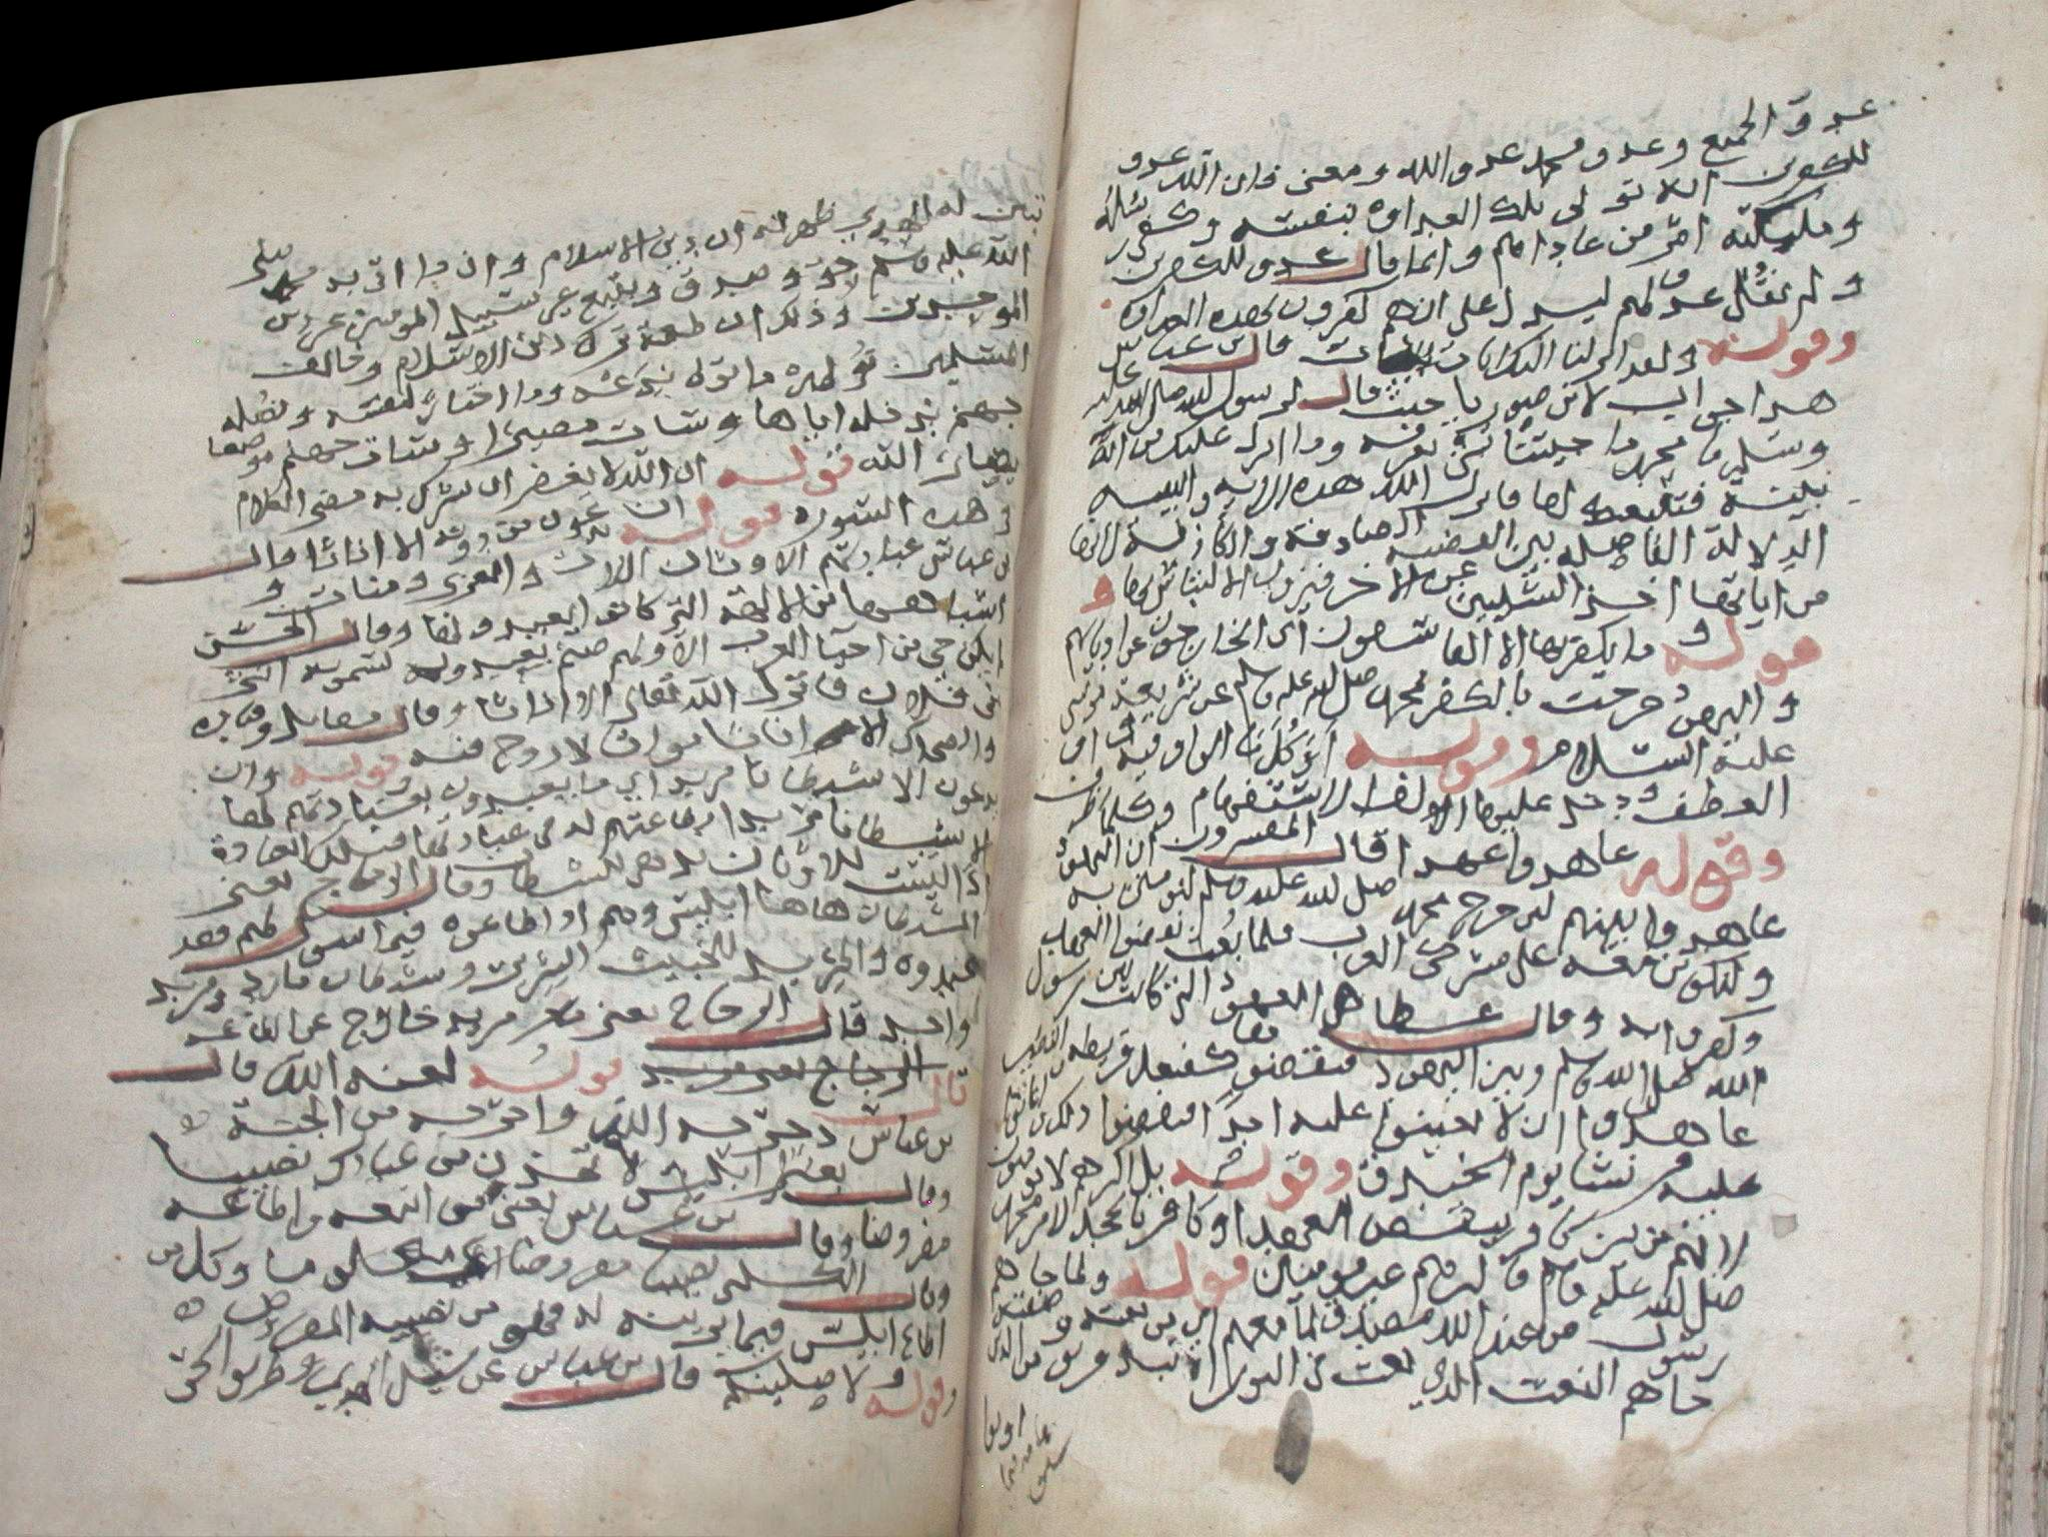 عدو الجميع وعدو محمد عدو الله ومعنى فان الله عدو
للكفرين انه تولى تلك العداوة بنفسه وكفى رسله
وملئكته امر من عاداهم وانما قال عدو للكفرين
ولم يقل عدو لهم ليدل على انهم كفرون بهذه العداوة
وقوله ولقد انزلنا اليك ايات بينات قال بن عباس
هذا جواب لابن صوريا حيث قال لرسول الله صلى الله عليه
وسلم يا محمد ما جيتنا بشئ نعرفه وما انزل عليك من اية
بينة فنتبعك لها فانزل الله هذه الاية والبينه
الدلالة الفاصله بين القضية الصادقة والكاذبة لانها
من ابانة احد الشيئين عن الاخر فيزول الالتباس بها و
قوله وما يكفر بها الا الفاسقون اي الخارجون عن اديانهم
واليهود خرجت بالكفر بمحمد صلى الله عليه وسلم عن شريعة موسى
عليه السلام وقوله اوكلما الواو فيه واو
العطف دخلت عليها الف الاستفهام وكلما ظرف
وقوله عاهدوا عهدا قال المفسرون ان اليهود
عاهدوا بينهم لين خرج محمد صلى الله عليه وسلم لنومنن به
ولنكونن معه على مشركي العرب فلما بعث نقضوا العهد
وكفروا به وقال عطا هي العهود التي كانت بين رسول
الله صلى الله عليه وسلم وبين اليهود فنقضوها كفعل قريظه والنضير
عاهدوا ان لا يعينوا عليه احدا فنقضوا ذلك واعانوا
عليه قريشا يوم الخندق وقوله بل اكثرهم لا يومنون
لانهم من بين كافر بنقض العهد او كافر بالجحد لامر محمد
صلى الله عليه وسلم قاكثرهم غير مومنين قوله ولما جاهم
رسول من عند الله مصدق لما معهم اي من نعته وصفته
جاهم النعت الذي نعت في التوراة نبذ فريق من الذين
اوتوا
تبين له الهدى ظهر له ان دين الاسلام وان ما اتى به محمد صلى
الله عليه وسلم حق وصدق ويتبع غير سبيل المومنين غير دين
الموحدين وذلك ان طعمة ترك دين الاسلام وخالف
المسلمين نوله ما تولى ندعه وما اختار لنفسه ونصله
جهنم ندخله اياها وسات مصيرا وسات جهنم موضعا
قوله ان الله لا يغفر ان يشرك به مضى الكلام
في هذه السورة قوله ان يدعون من دونه الا اناثا قال
بن عباس عبادتهم الاوثان اللات والعزى ومنات و
اشباهها من الالهة التي كانوا يعبدونها وقال الحسن
لم يكن حي من احيا العرب الا ولهم صنم يعبدونه يسمونه انثى
بني فلان فانزل الله تعالى الا اناثا وقال مقاتل وقتادة
والضحاك الا اناثا امواتا لا روح فيه قوله وان
يدعون الا شيطانا مريدا اي ما يعبدون بعبادتهم لها
الا شيطانا مريدا بطاعتهم له في عبادتها فتلك العبادة
ليست للاوثان بل هي للشيطان وقال الزجاج يعني
بالشيطان هاهنا ابليس وهم اذا اطاعوه فيما سول لهم فقد
عبدوه والمريد الخبيث الشرير وشيطان مارد ومريد
واحد قال الزجاج يعني مريد خارج عن الطاعة
قال قوله لعنه الله قال
بن عباس دحره الله واخرجه من الجنة
وقال يعني ابليس لاتخذن من عبادك نصيبا
مفروضا وقال بن عباس يعني من اتبعه واطاعه
وقال الكلبي نصيبا مفروضا معلوما وكل من
اطاع ابليس فيما يزينه له فهو من نصيبه المفروض
وقوله ولاضلنهم قال بن عباس عن سبيل الهدى وطريق الحق